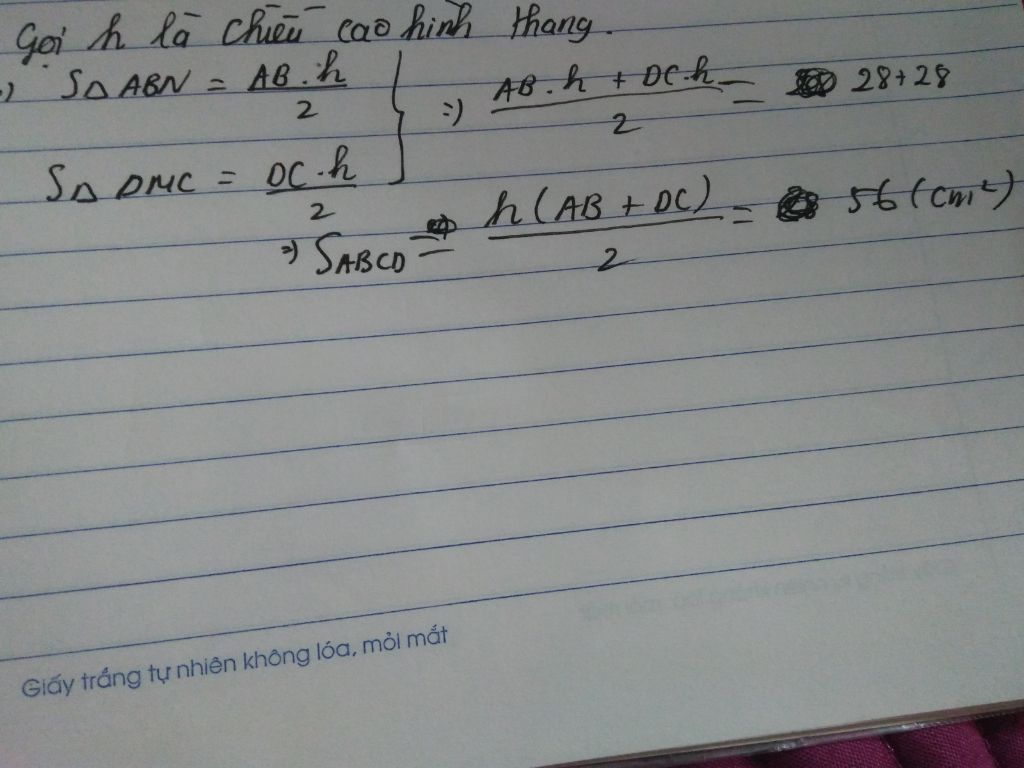 Gọi h là chiều cao hình thang.
S△ ABN = AB . h / 2 } => AB . h + DC . h / 2 = 28 + 28
S△ DMC = DC . h / 2
=> SABCD = h ( AB + DC ) / 2 = 56 ( cm² )
Giấy trắng tự nhiên không lóa, mỏi mắt